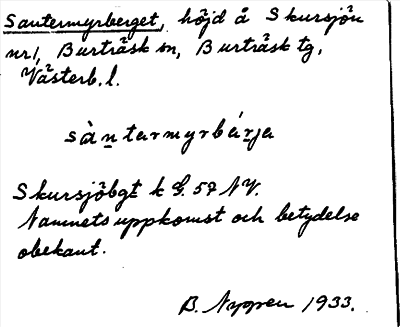 Santermyrberget, höjd å Skursjön
nr 1, Burträsk sn, Burträsk tg,
Västerb. l.
sàntarmyrbárja
Skursjöbgt k G. 57 NV.
Namnets uppkomst och betydelse
obekant.
B. Nyppen 1933.